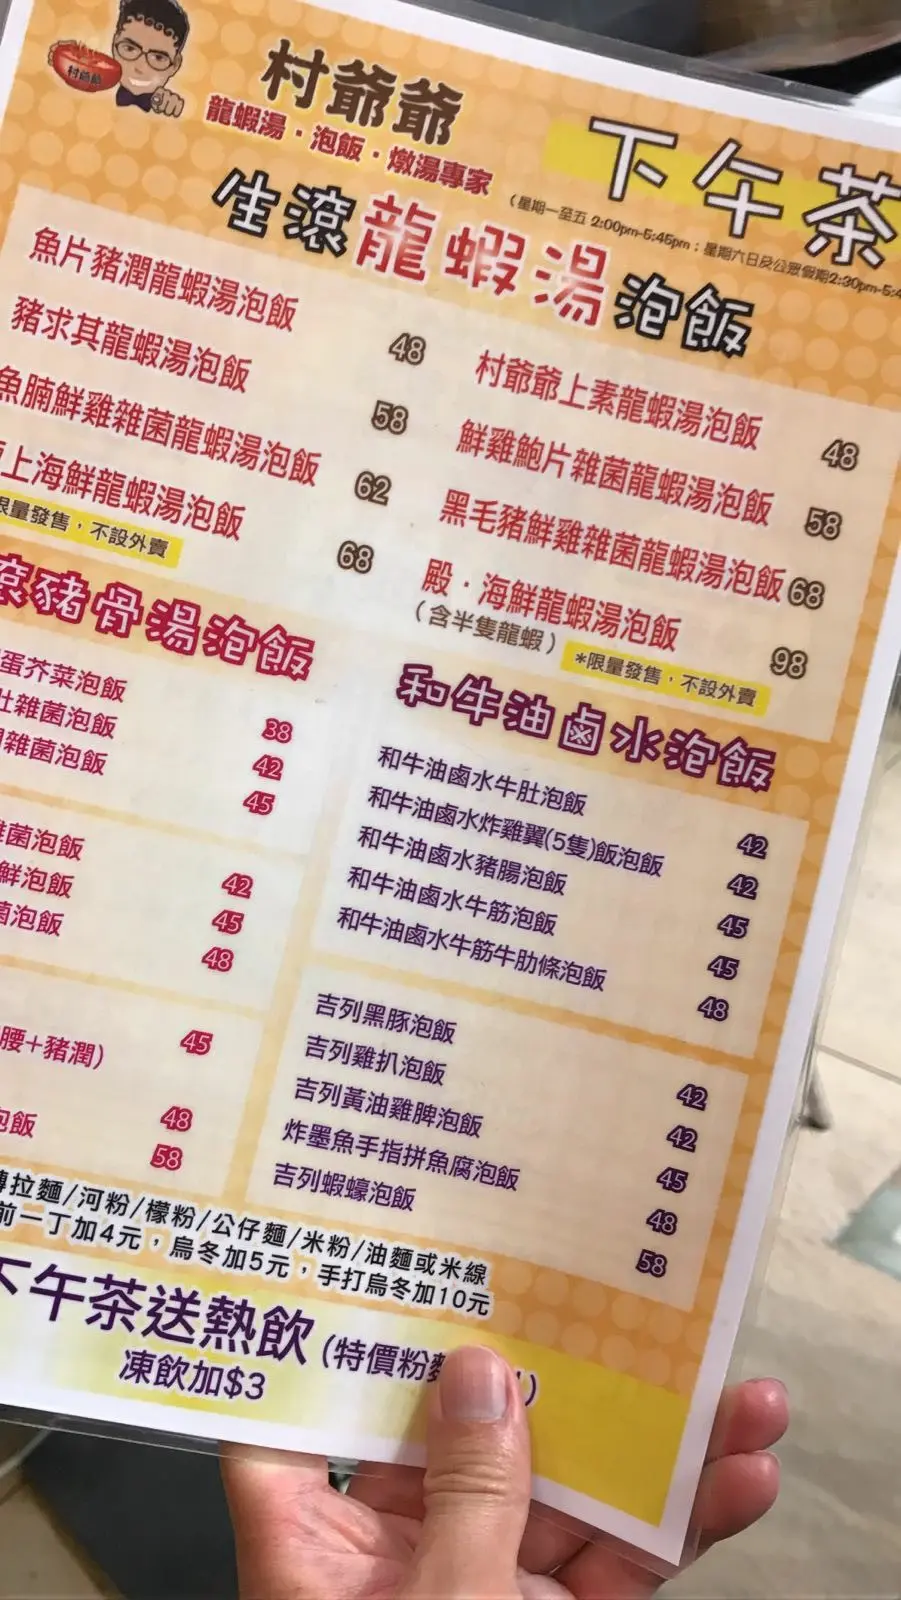 村爺爺
村爺爺
龍蝦湯·泡飯·燉湯專家
下午茶
(星期一至五 2:00pm-5:45pm；星期六日及公眾假期2:30pm-5:4
生滾龍蝦湯泡飯
魚片豬潤龍蝦湯泡飯 48
豬求其龍蝦湯泡飯 58
魚腩鮮雞雜菌龍蝦湯泡飯 62
上海鮮龍蝦湯泡飯 68
限量發售，不設外賣
村爺爺上素龍蝦湯泡飯 48
鮮雞鮑片雜菌龍蝦湯泡飯 58
黑毛豬鮮雞雜菌龍蝦湯泡飯 68
殿·海鮮龍蝦湯泡飯 98
(含半隻龍蝦)
*限量發售，不設外賣
滾豬骨湯泡飯
蛋芥菜泡飯 38
肚雜菌泡飯 42
雜菌泡飯 45
菌泡飯 42
鮮泡飯 45
菌泡飯 48
45
腰+豬潤)
48
泡飯 58
和牛油鹵水泡飯
和牛油鹵水牛肚泡飯 42
和牛油鹵水炸雞翼(5隻)飯泡飯 42
和牛油鹵水豬腸泡飯 45
和牛油鹵水牛筋泡飯 45
和牛油鹵水牛筋牛肋條泡飯 48
吉列黑豚泡飯 42
吉列雞扒泡飯 42
吉列黃油雞脾泡飯 45
炸墨魚手指拼魚腐泡飯 48
吉列蝦蠔泡飯 58
轉拉麵/河粉/檬粉/公仔麵/米粉/油麵或米線
前一丁加4元，烏冬加5元，手打烏冬加10元
下午茶送熱飲(特價粉麵
凍飲加$3